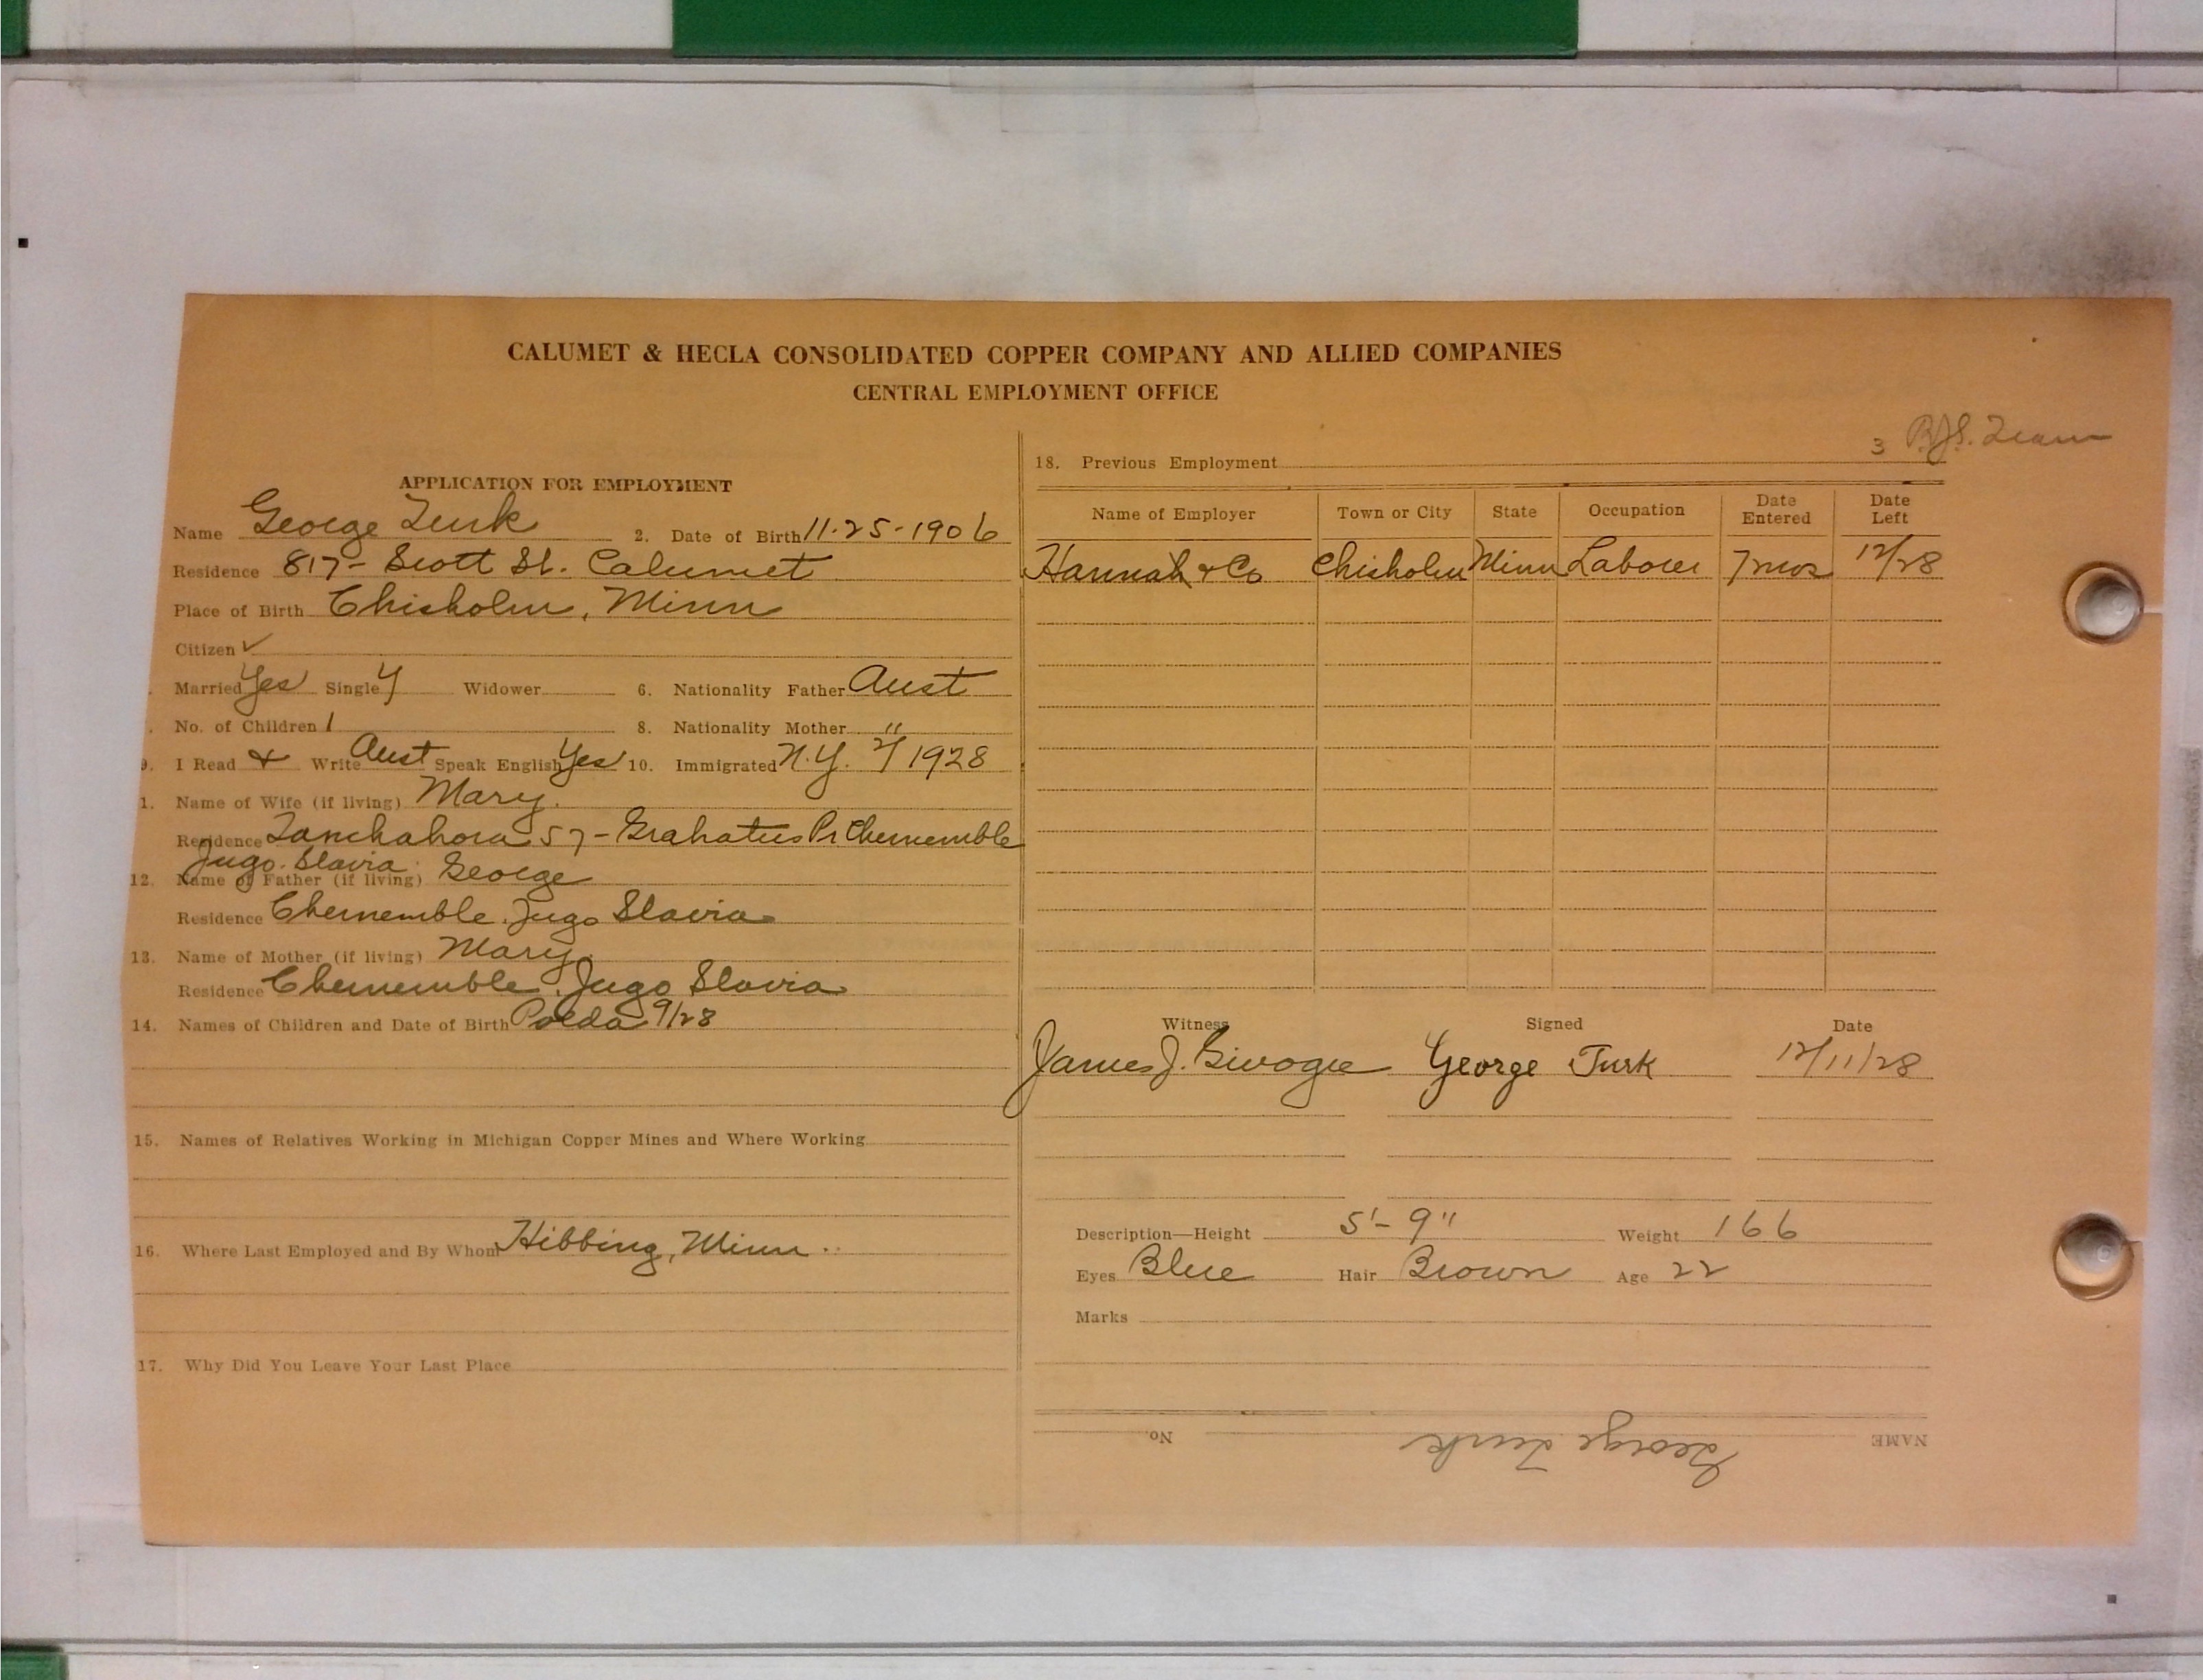 CALUMET & HECLA CONSOLIDATED COPPER COMPANY AND ALLIED COMPANIES
CENTRAL EMPLOYMENT OFFICE
APPLICATION FOR EMPLOYMENT
Name George Turk 2. Date of Birth 11-25-1906
Residence 817- Scott St. Calumet
Place of Birth Chisholm, Minn
Citizen ✓
Married Yes Single Y Widower 6. Nationality Father Aust
No. of Children 1 8. Nationality Mother "
9. I Read & Write Aust Speak English Yes 10. Immigrated N.Y. 2/1928
1. Name of Wife (if living) Mary.
Residence 57- Chernemble
Jugo. Slavia
12. Name of Father (if living) George
Residence Chernemble. Jugo Slavia
13. Name of Mother (if living) Mary.
Residence Chernemble. Jugo Slavia
14. Names of Children and Date of Birth 9/28
15. Names of Relatives Working in Michigan Copper Mines and Where Working
16. Where Last Employed and By Whom Hibbing, Minn.
17. Why Did You Leave Your Last Place
3
18. Previous Employment
Name of Employer Town or City State Occupation Date Entered Date Left
Hannah & Co Chisholm Minn Laborer 7 mos 12/28
Witness Signed Date
James J. George Turk 12/11/28
Description—Height 5'-9" Weight 166
Eyes Blue Hair Brown Age 22
Marks
NAME George Turk No.